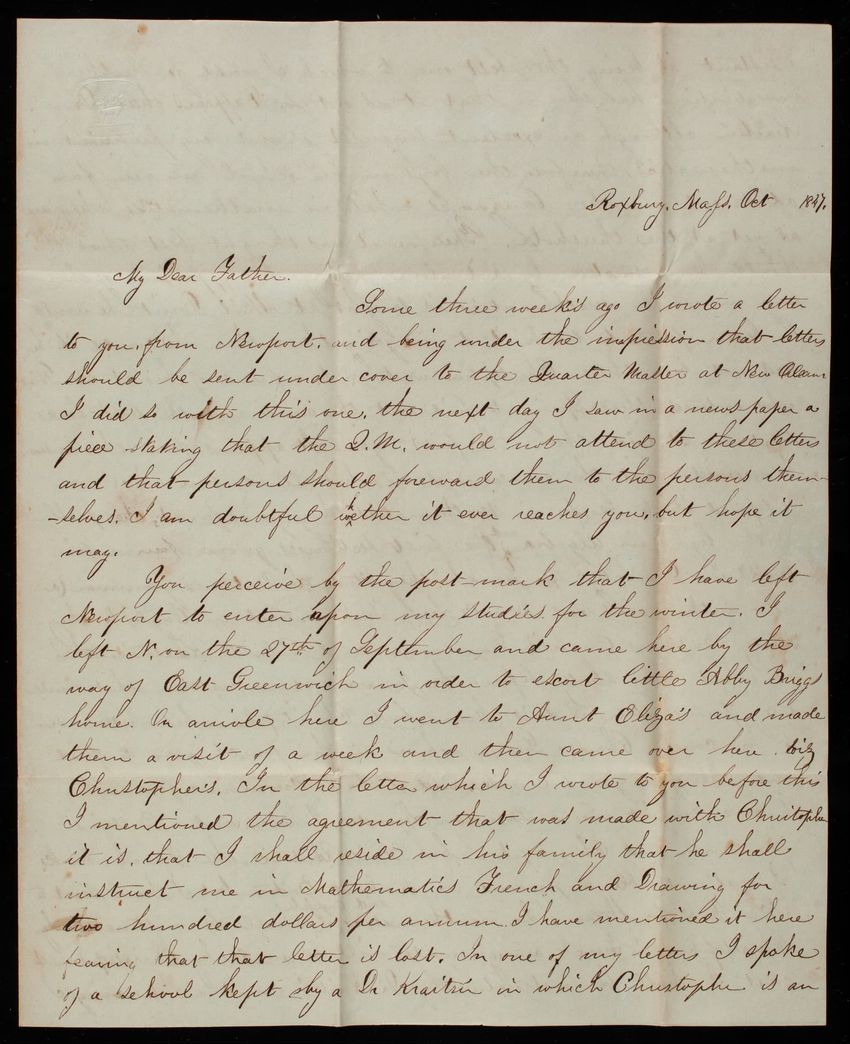 Roxbury, Mass. Oct 1847.
My Dear Father.
Some three week's ago I wrote a letter
to you, from Newport, and being under the impression that letters
should be sent under cover to the Quarter Master at New Orleans
I did so with this one, the next day I saw in a news paper a
piece staking that the Q.M. would not attend to these letters
and that persons should foreward them to the persons them-
-selves. I am doubtful wether it ever reaches you, but hope it
may.
You perceive by the post-mark that I have left
Newport to enter upon my studies for the winter. I
left N. on the 27th of September and came here by the
way of East Greenwich in order to escort little Abby Briggs
home. On arivole here I went to Aunt Eliza's and made
them a visit of a week and then came over here. viz
Christopher's. In the letter which I wrote to you before this
I mentioned the agreement that was made with Christopher
it is, that I shall reside in his family that he shall
instruct me in Mathematics French and Drawing for
two hundred dollars per annum. I have mentioned it here
fearing that that letter is lost. In one of my letters I spoke
of a school kept by a Dr Kraitsir in which Christopher is an